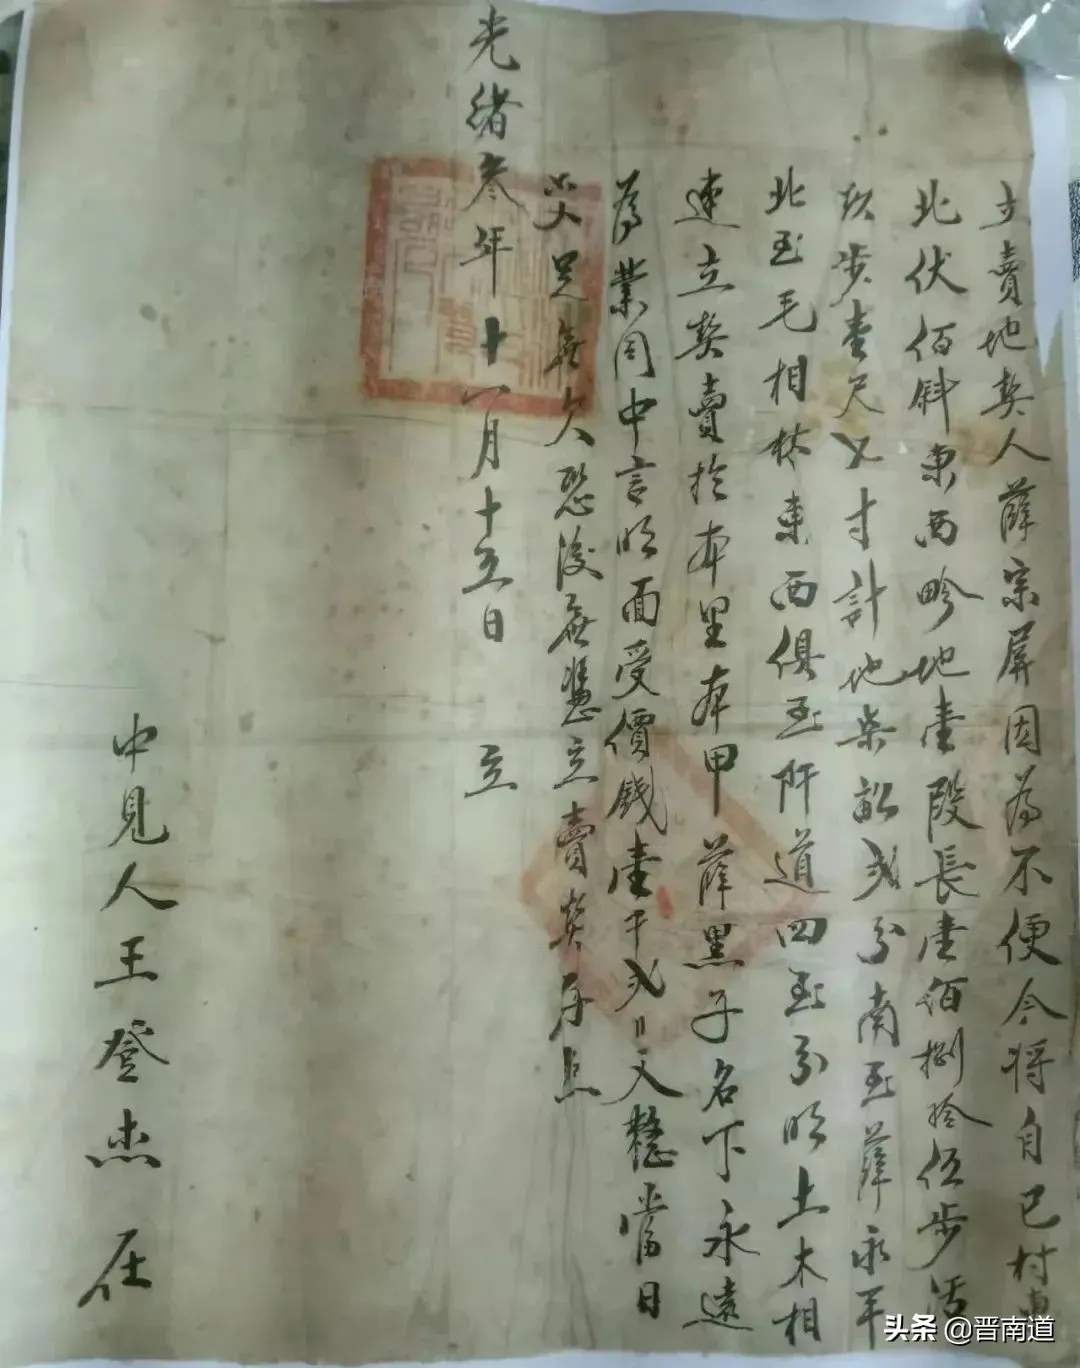 立賣地契人薛宗屏因為不便今將自己村東
北伏佰斜東西畛地壹段長壹佰捌拾伍步活
玖步壹尺乂寸計地柒畝弍分南至薛永平
北至毛相林東西俱至阡道四至分明土木相
連立契賣於本里本甲薛黑子名下永遠
為業同中言明面受價錢壹千弍〃文整當日
交足無欠恐後無憑立賣契存照
光緒叁年十一月十五日 立
中見人王登杰 在
头条 @晋南道